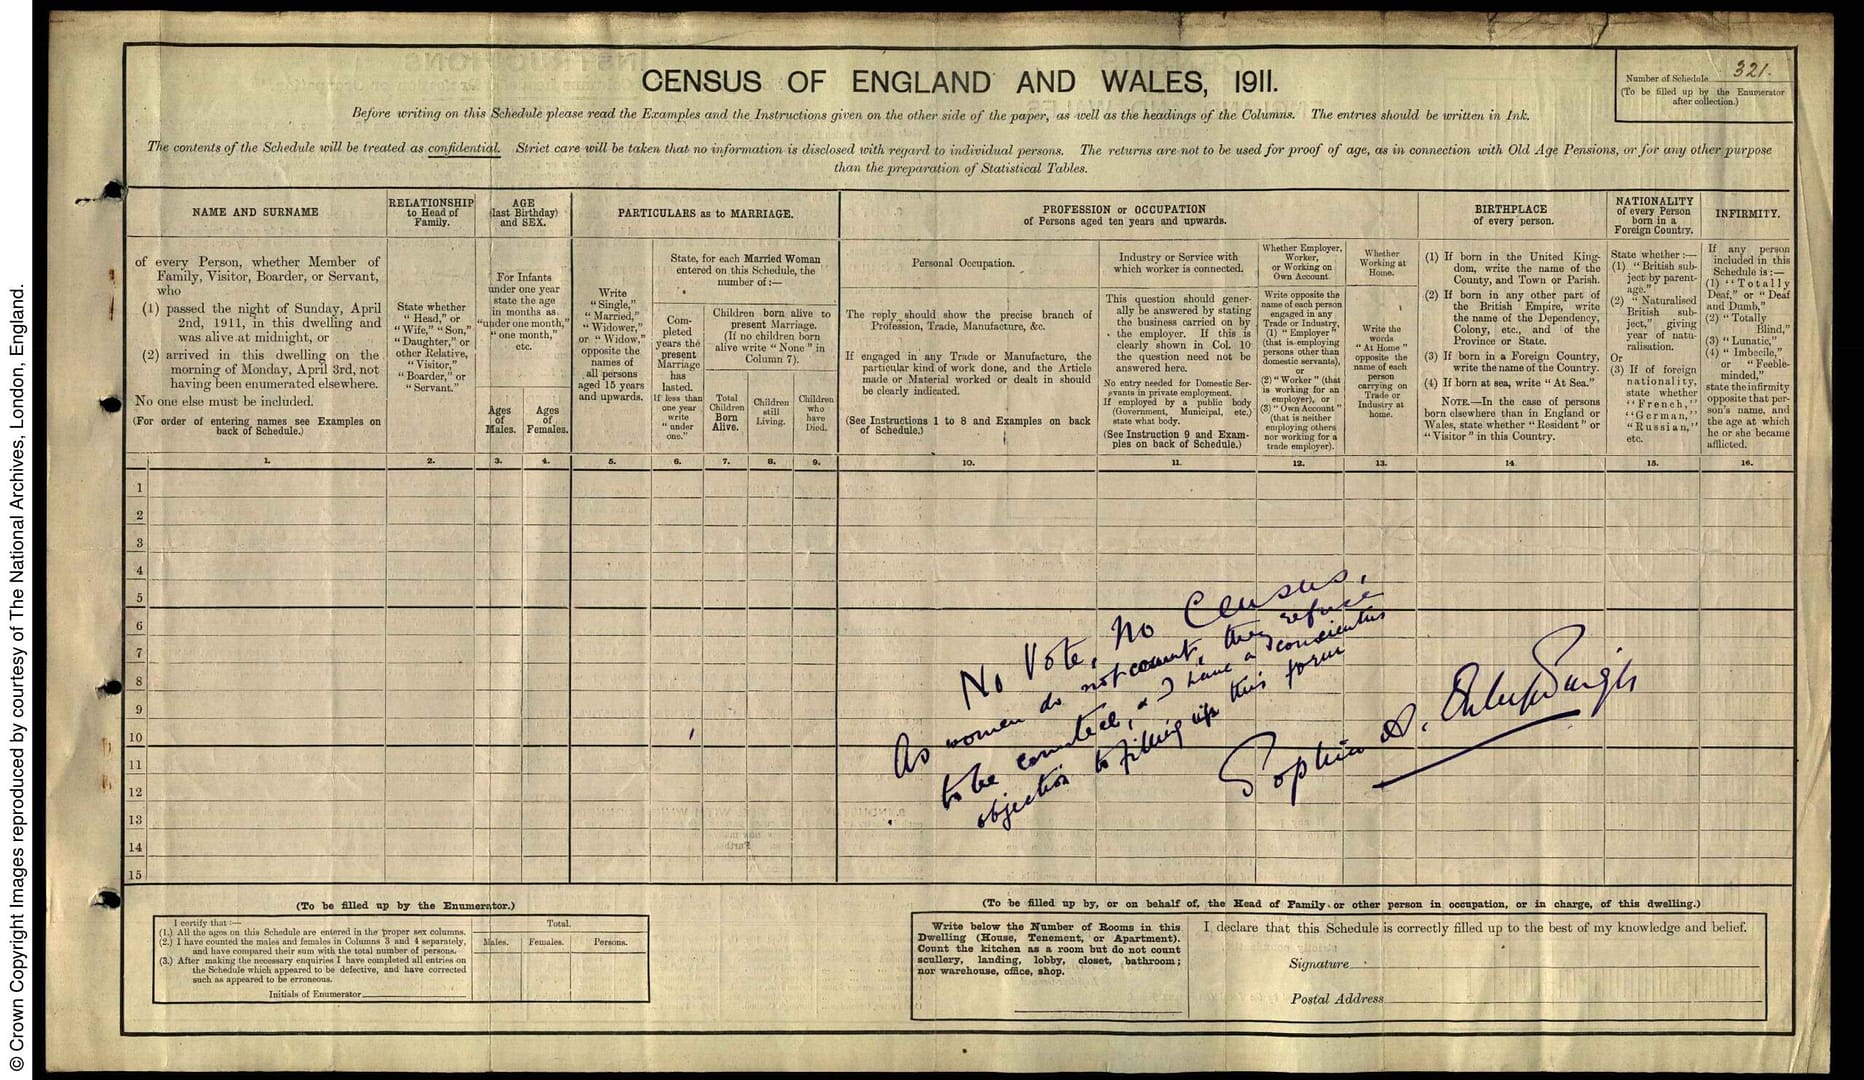 CENSUS OF ENGLAND AND WALES, 1911.
Number of Schedule 321.
(To be filled up by the Enumerator
after collection.)
Before writing on this Schedule please read the Examples and the Instructions given on the other side of the paper, as well as the headings of the Columns. The entries should be written in Ink.
The contents of the Schedule will be treated as confidential. Strict care will be taken that no information is disclosed with regard to individual persons. The returns are not to be used for proof of age, as in connection with Old Age Pensions, or for any other purpose
than the preparation of Statistical Tables.
NAME AND SURNAME
of every Person, whether Member of
Family, Visitor, Boarder, or Servant,
who
(1) passed the night of Sunday, April
2nd, 1911, in this dwelling and
was alive at midnight, or
(2) arrived in this dwelling on the
morning of Monday, April 3rd, not
having been enumerated elsewhere.
No one else must be included.
(For order of entering names see Examples on
back of Schedule.)
RELATIONSHIP
to Head of
Family.
State whether
"Head," or
"Wife," "Son,"
"Daughter," or
other Relative,
"Visitor,"
"Boarder," or
"Servant."
AGE
(last Birthday)
and SEX.
For Infants
under one year
state the age
in months as
"under one month,"
"one month,"
etc.
Ages
of
Males.
Ages
of
Females.
PARTICULARS as to MARRIAGE.
Write
"Single,"
"Married,"
"Widower,"
or "Widow,"
opposite the
names of
all persons
aged 15 years
and upwards.
State, for each Married Woman
entered on this Schedule, the
number of:—
Com-
pleted
years the
present
Marriage
has
lasted.
If less than
one year
write
"under
one."
Children born alive to
present Marriage.
(If no children born
alive write "None" in
Column 7).
Total
Children
Born
Alive.
Children
still
Living.
Children
who
have
Died.
PROFESSION or OCCUPATION
of Persons aged ten years and upwards.
Personal Occupation.
The reply should show the precise branch of
Profession, Trade, Manufacture, &c.
If engaged in any Trade or Manufacture, the
particular kind of work done, and the Article
made or Material worked or dealt in should
be clearly indicated.
(See Instructions 1 to 8 and Examples on back
of Schedule.)
Industry or Service with
which worker is connected.
This question should gener-
ally be answered by stating
the business carried on by
the employer. If this is
clearly shown in Col. 10
the question need not be
answered here.
No entry needed for Domestic Ser-
vants in private employment.
If employed by a public body
(Government, Municipal, etc.)
state what body.
(See Instruction 9 and Exam-
ples on back of Schedule.)
Whether Employer,
Worker,
or Working on
Own Account.
Write opposite the
name of each person
engaged in any
Trade or Industry,
(1) "Employer"
(that is employing
persons other than
domestic servants),
or
(2) "Worker" (that
is working for an
employer), or
(3) "Own Account"
(that is neither
employing others
nor working for a
trade employer).
Whether
Working at
Home.
Write the
words
"At Home"
opposite the
name of each
person
carrying on
Trade or
Industry at
home.
BIRTHPLACE
of every person.
(1) If born in the United King-
dom, write the name of the
County, and Town or Parish.
(2) If born in any other part of
the British Empire, write
the name of the Dependency,
Colony, etc., and of the
Province or State.
(3) If born in a Foreign Country,
write the name of the Country.
(4) If born at sea, write "At Sea."
NOTE.—In the case of persons
born elsewhere than in England or
Wales, state whether "Resident" or
"Visitor" in this Country.
NATIONALITY
of every Person
born in a
Foreign Country.
State whether:—
(1) "British sub-
ject by parent-
age."
(2) "Naturalised
British sub-
ject," giving
year of natu-
ralisation.
Or
(3) If of foreign
nationality,
state whether
"French,"
"German,"
"Russian,"
etc.
INFIRMITY.
If any person
included in this
Schedule is:—
(1) "Totally
Deaf," or "Deaf
and Dumb,"
(2) "Totally
Blind,"
(3) "Lunatic,"
(4) "Imbecile,"
or "Feeble-
minded,"
state the infirmity
opposite that per-
son's name, and
the age at which
he or she became
afflicted.
1. 2. 3. 4. 5. 6. 7. 8. 9. 10. 11. 12. 13. 14. 15. 16.
1
2
3
4
5
6
7
8
9
10
11
12
13
14
15
No Vote, No Census.
As women do not count, they refuse
to be counted, & I have a conscientus
objection to filling up this form
Sophia A. Duleep Singh
(To be filled up by the Enumerator.)
I certify that:—
(1.) All the ages on this Schedule are entered in the proper sex columns.
(2.) I have counted the males and females in Columns 3 and 4 separately,
and have compared their sum with the total number of persons.
(3.) After making the necessary enquiries I have completed all entries on
the Schedule which appeared to be defective, and have corrected
such as appeared to be erroneous.
Initials of Enumerator
Total.
Males. Females. Persons.
(To be filled up by, or on behalf of, the Head of Family or other person in occupation, or in charge, of this dwelling.)
Write below the Number of Rooms in this
Dwelling (House, Tenement, or Apartment).
Count the kitchen as a room but do not count
scullery, landing, lobby, closet, bathroom;
nor warehouse, office, shop.
I declare that this Schedule is correctly filled up to the best of my knowledge and belief.
Signature
Postal Address
© Crown Copyright Images reproduced by courtesy of The National Archives, London, England.